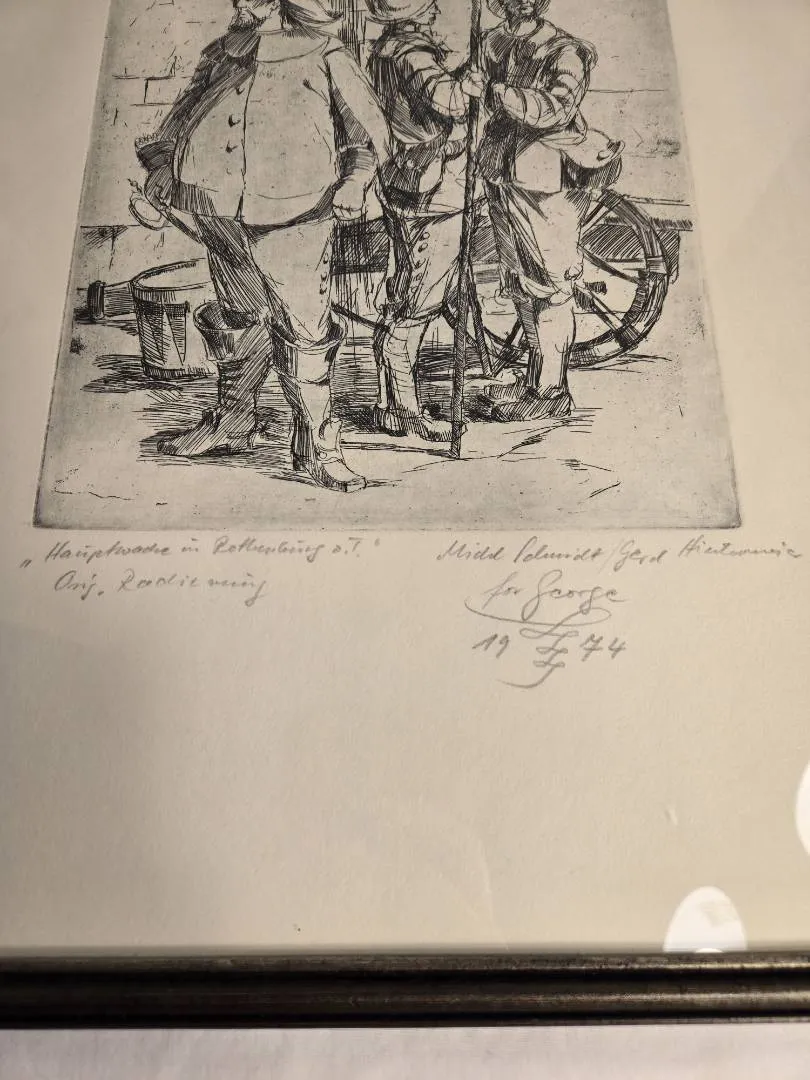 „Hauptwache in Rothenburg o.T."
Orig. Radierung
Schmidt / Gerd
for George
1974